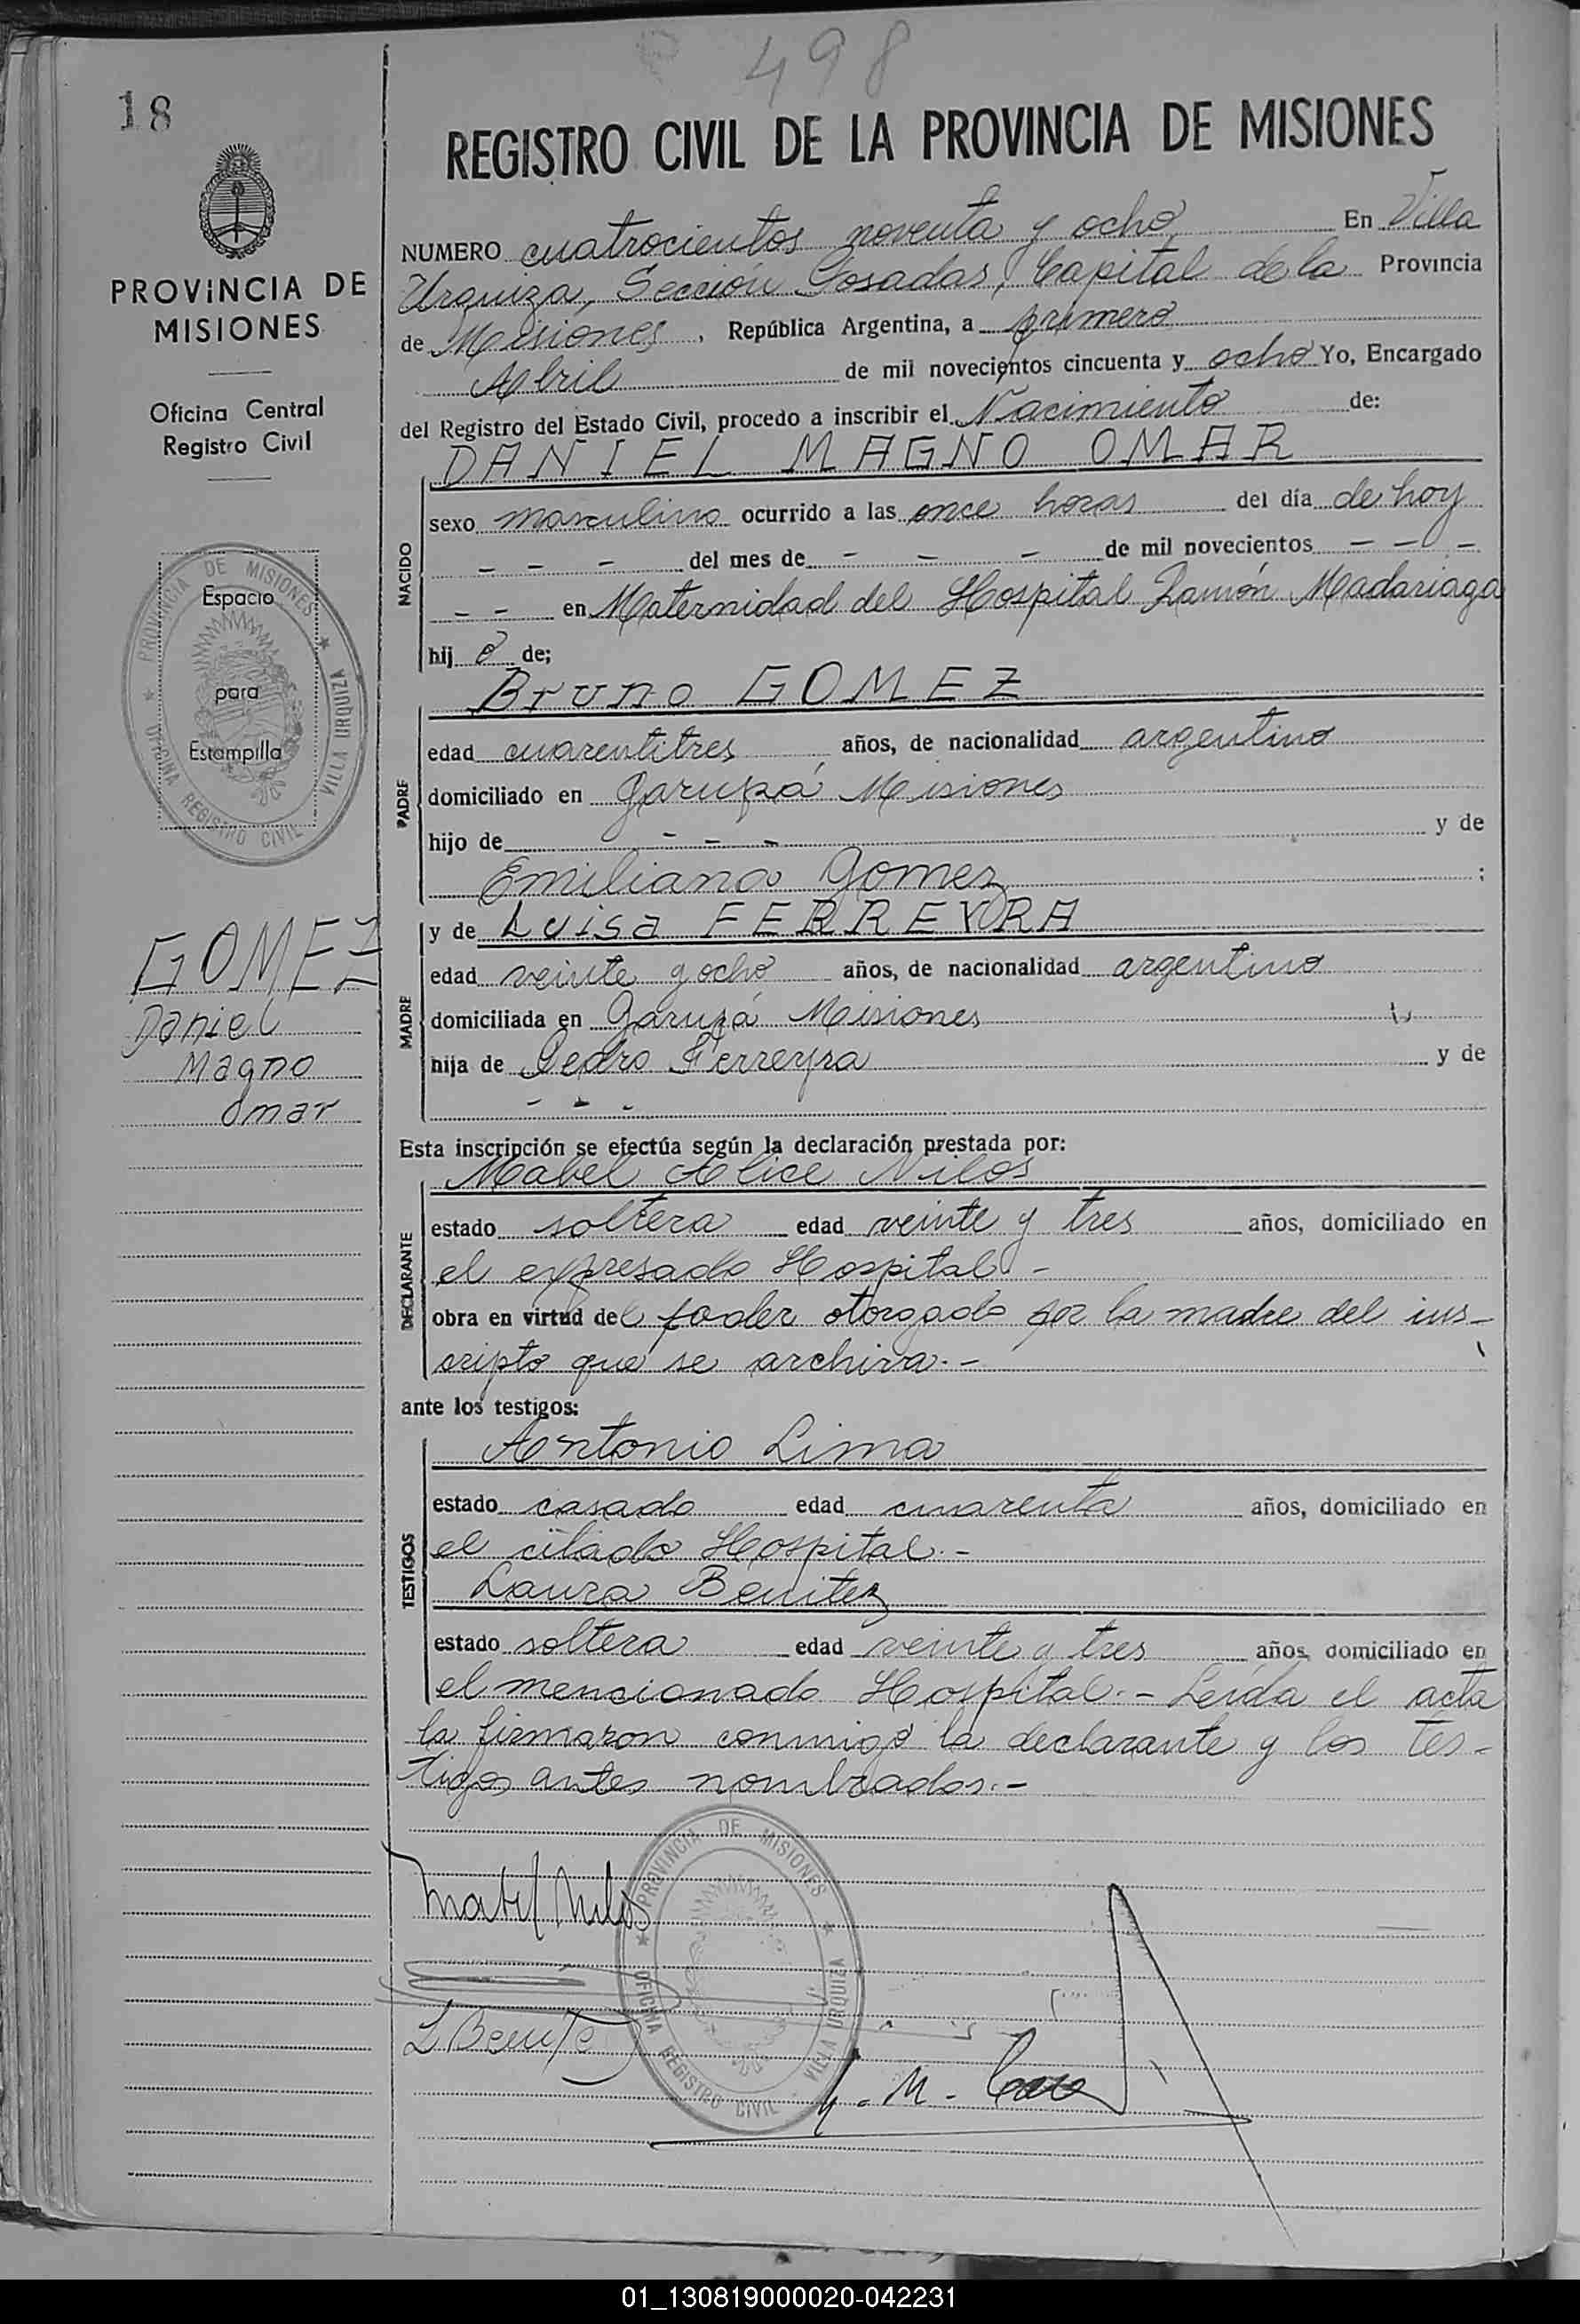 498
18
REGISTRO CIVIL DE LA PROVINCIA DE MISIONES
PROVINCIA DE
MISIONES
Oficina Central
Registro Civil
PROVINCIA DE MISIONES ★ VILLA URQUIZA
OFICINA REGISTRO CIVIL ★
Espacio
para
Estampilla
GOMEZ
Daniel
Magno
Omar
NUMERO cuatrocientos noventa y ocho En Villa
Urquiza, Sección Posadas, Capital de la Provincia
de Misiones, República Argentina, a primero
Abril de mil novecientos cincuenta y ocho Yo, Encargado
del Registro del Estado Civil, procedo a inscribir el Nacimiento de:
NACIDO
DANIEL MAGNO OMAR
sexo masculino ocurrido a las once horas del día de hoy
- - - del mes de - - - de mil novecientos - - -
- - en Maternidad del Hospital Ramón Madariaga
hij o de;
PADRE
Bruno GOMEZ
edad cuarentitres años, de nacionalidad argentino
domiciliado en Garupá Misiones
hijo de - - - y de
Emiliana Gomez ;
MADRE
y de Luisa FERREYRA
edad veinte y ocho años, de nacionalidad argentino
domiciliada en Garupá Misiones
hija de Pedro Ferreyra y de
- - -
Esta inscripción se efectúa según la declaración prestada por:
DECLARANTE
Mabel Alice Nilos
estado soltera edad veinte y tres años, domiciliado en
el expresado Hospital -
obra en virtud del poder otorgado por la madre del ins-
cripto que se archiva.-
ante los testigos:
TESTIGOS
Antonio Lima
estado casado edad cuarenta años, domiciliado en
el citado Hospital.-
Laura Benitez
estado soltera edad veinte y tres años, domiciliado en
el mencionado Hospital.- Leída el acta
la firmaron conmigo la declarante y los tes-
tigos antes nombrados.-
Mabel Nilos
PROVINCIA DE MISIONES ★ VILLA URQUIZA
OFICINA REGISTRO CIVIL ★
L Benitez
01_130819000020-042231